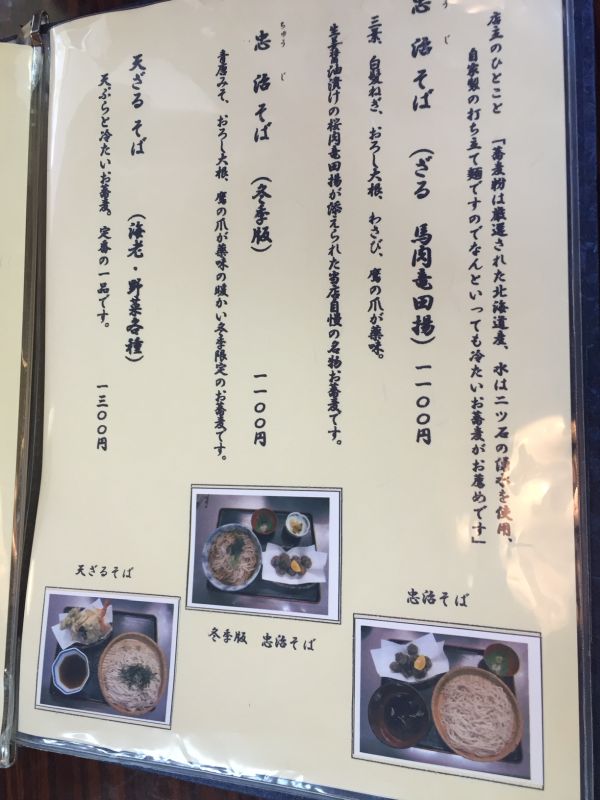 店主のひとこと 「蕎麦粉は厳選された北海道産、水は二ツ石の湧水を使用、
自家製の打ち立て麺ですのでなんといっても冷たいお蕎麦がお薦めです」
忠治そば (ざる 馬肉竜田揚) 一一〇〇円
うじ
三葉、白髪ねぎ、おろし大根、わさび、鷹の爪が薬味。
生姜醤油漬けの桜肉竜田揚が添えられた当店自慢の名物お蕎麦です。
忠治そば (冬季版) 一一〇〇円
ちゅうじ
青唐みそ、おろし大根、鷹の爪が薬味の暖かい冬季限定のお蕎麦です。
天ざるそば (海老・野菜各種) 一三〇〇円
天ぷらと冷たいお蕎麦。定番の一品です。
天ざるそば
冬季版 忠治そば
忠治そば